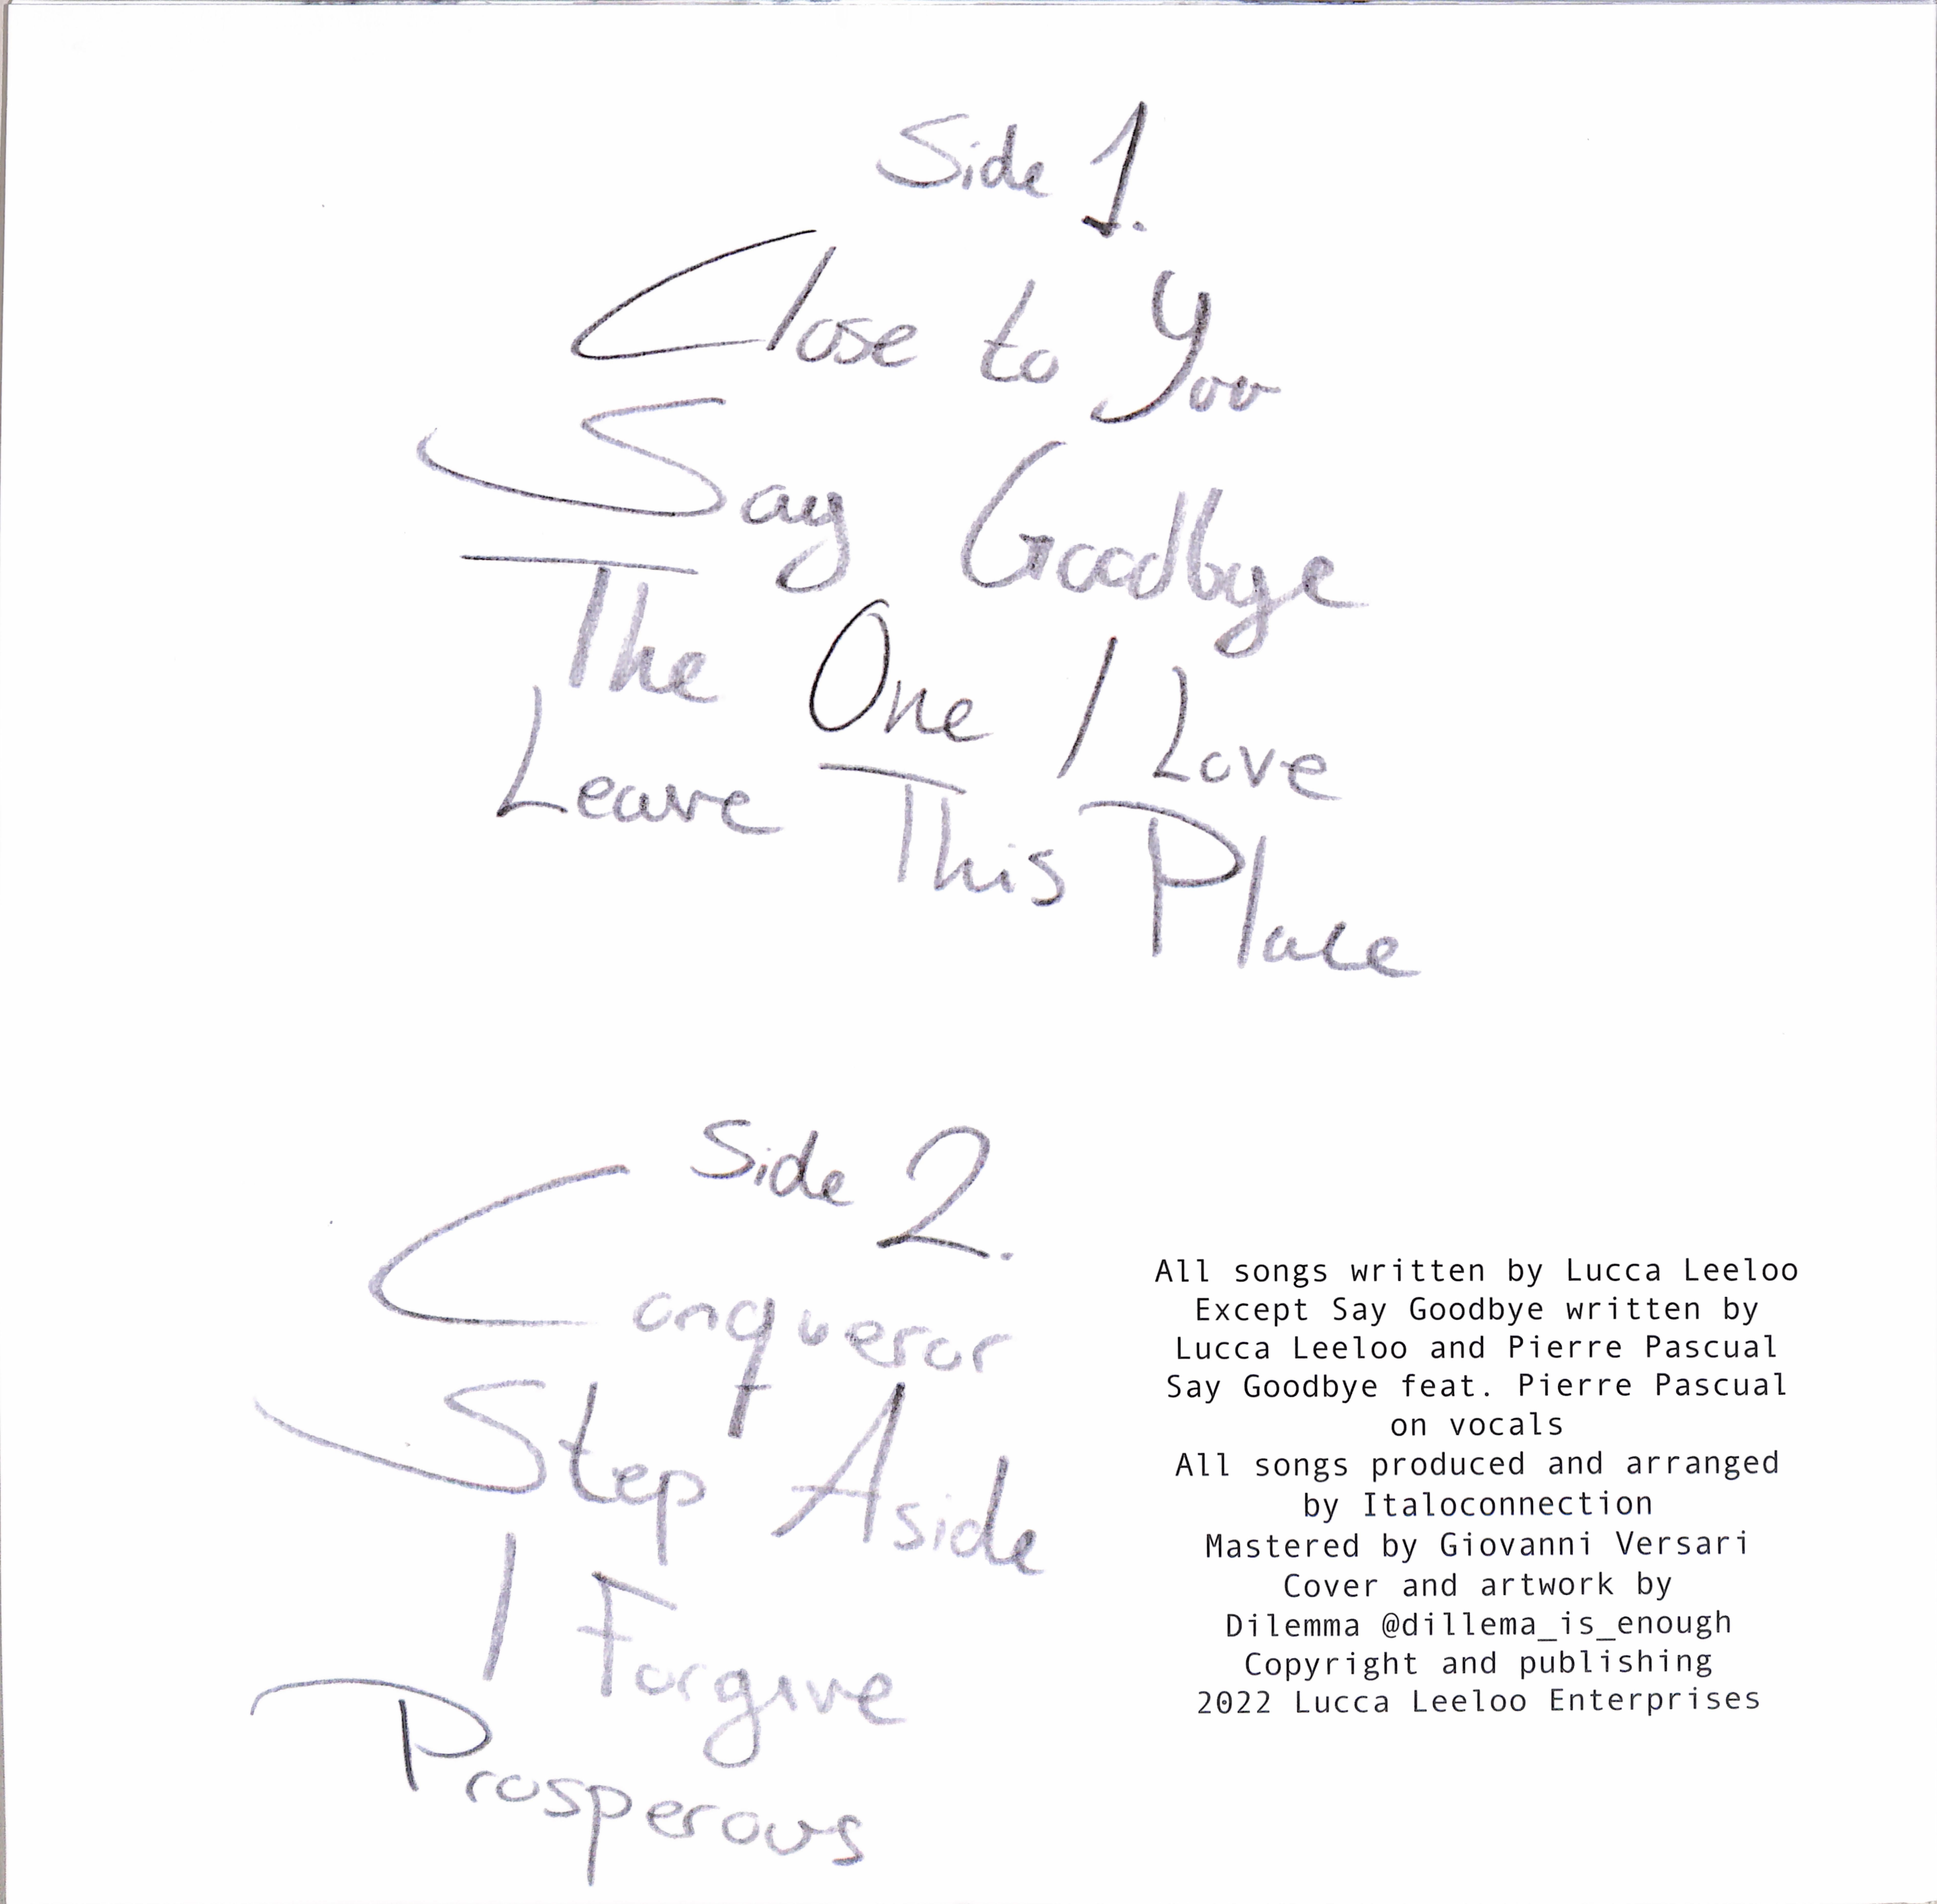 Side 1.
Close to You
Say Goodbye
The One I Love
Leave This Place
Side 2.
Conqueror
Step Aside
I Forgive
Prosperous
All songs written by Lucca Leeloo
Except Say Goodbye written by
Lucca Leeloo and Pierre Pascual
Say Goodbye feat. Pierre Pascual
on vocals
All songs produced and arranged
by Italoconnection
Mastered by Giovanni Versari
Cover and artwork by
Dilemma @dillema_is_enough
Copyright and publishing
2022 Lucca Leeloo Enterprises